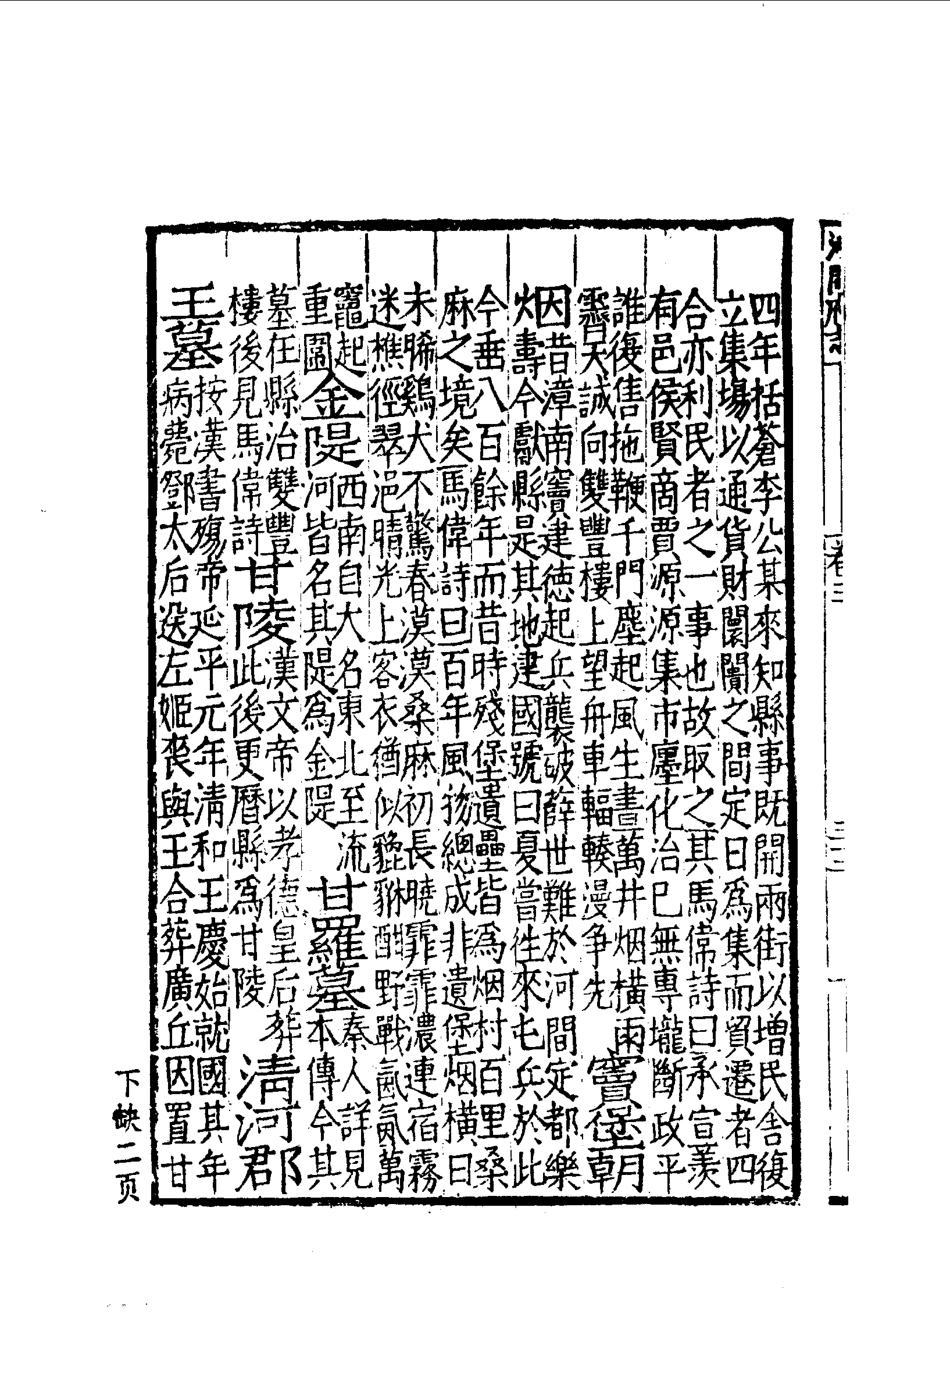 四年括蒼李公某來知縣事既開兩街以增民舍復
立集場以通貨財闤闠之間定日爲集而貿遷者四
合亦利民者之一事也故取之其馬偉詩曰承宣羨
有邑侯賢商賈源源集市廛化治已無專壠斷政平
誰復售拖鞭千門塵起風生晝萬井烟橫雨
霽天誠向雙豐樓上望舟車輻輳漫争先
竇堡朝
烟
昔漳南竇建德起兵襲破薛世難於河間定都樂
壽今獻縣是其地建國號曰夏嘗往來屯兵於此
今垂八百餘年而昔時殘堡遺壘皆爲烟村百里桑
麻之境矣馬偉詩曰百年風物總成非遺堡烟橫日
未晞鷄犬不驚春漠漠桑麻初長曉霏霏濃連宿霧
迷樵徑翠浥晴光上客衣猶似貔貅酣野戰氤氳萬
竈起
重圍
金隄
西南自大名東北至流
河皆名其隄爲金隄
甘羅墓
秦人詳見
本傳今其
墓在縣治雙豐
樓後見馬偉詩
甘陵
漢文帝以孝德皇后葬
此後更曆縣爲甘陵
清河郡
王墓
按漢書殤帝延平元年清和王慶始就國其年
病薨鄧太后送左姬喪與王合葬廣丘因置甘
下缺二页
卷三